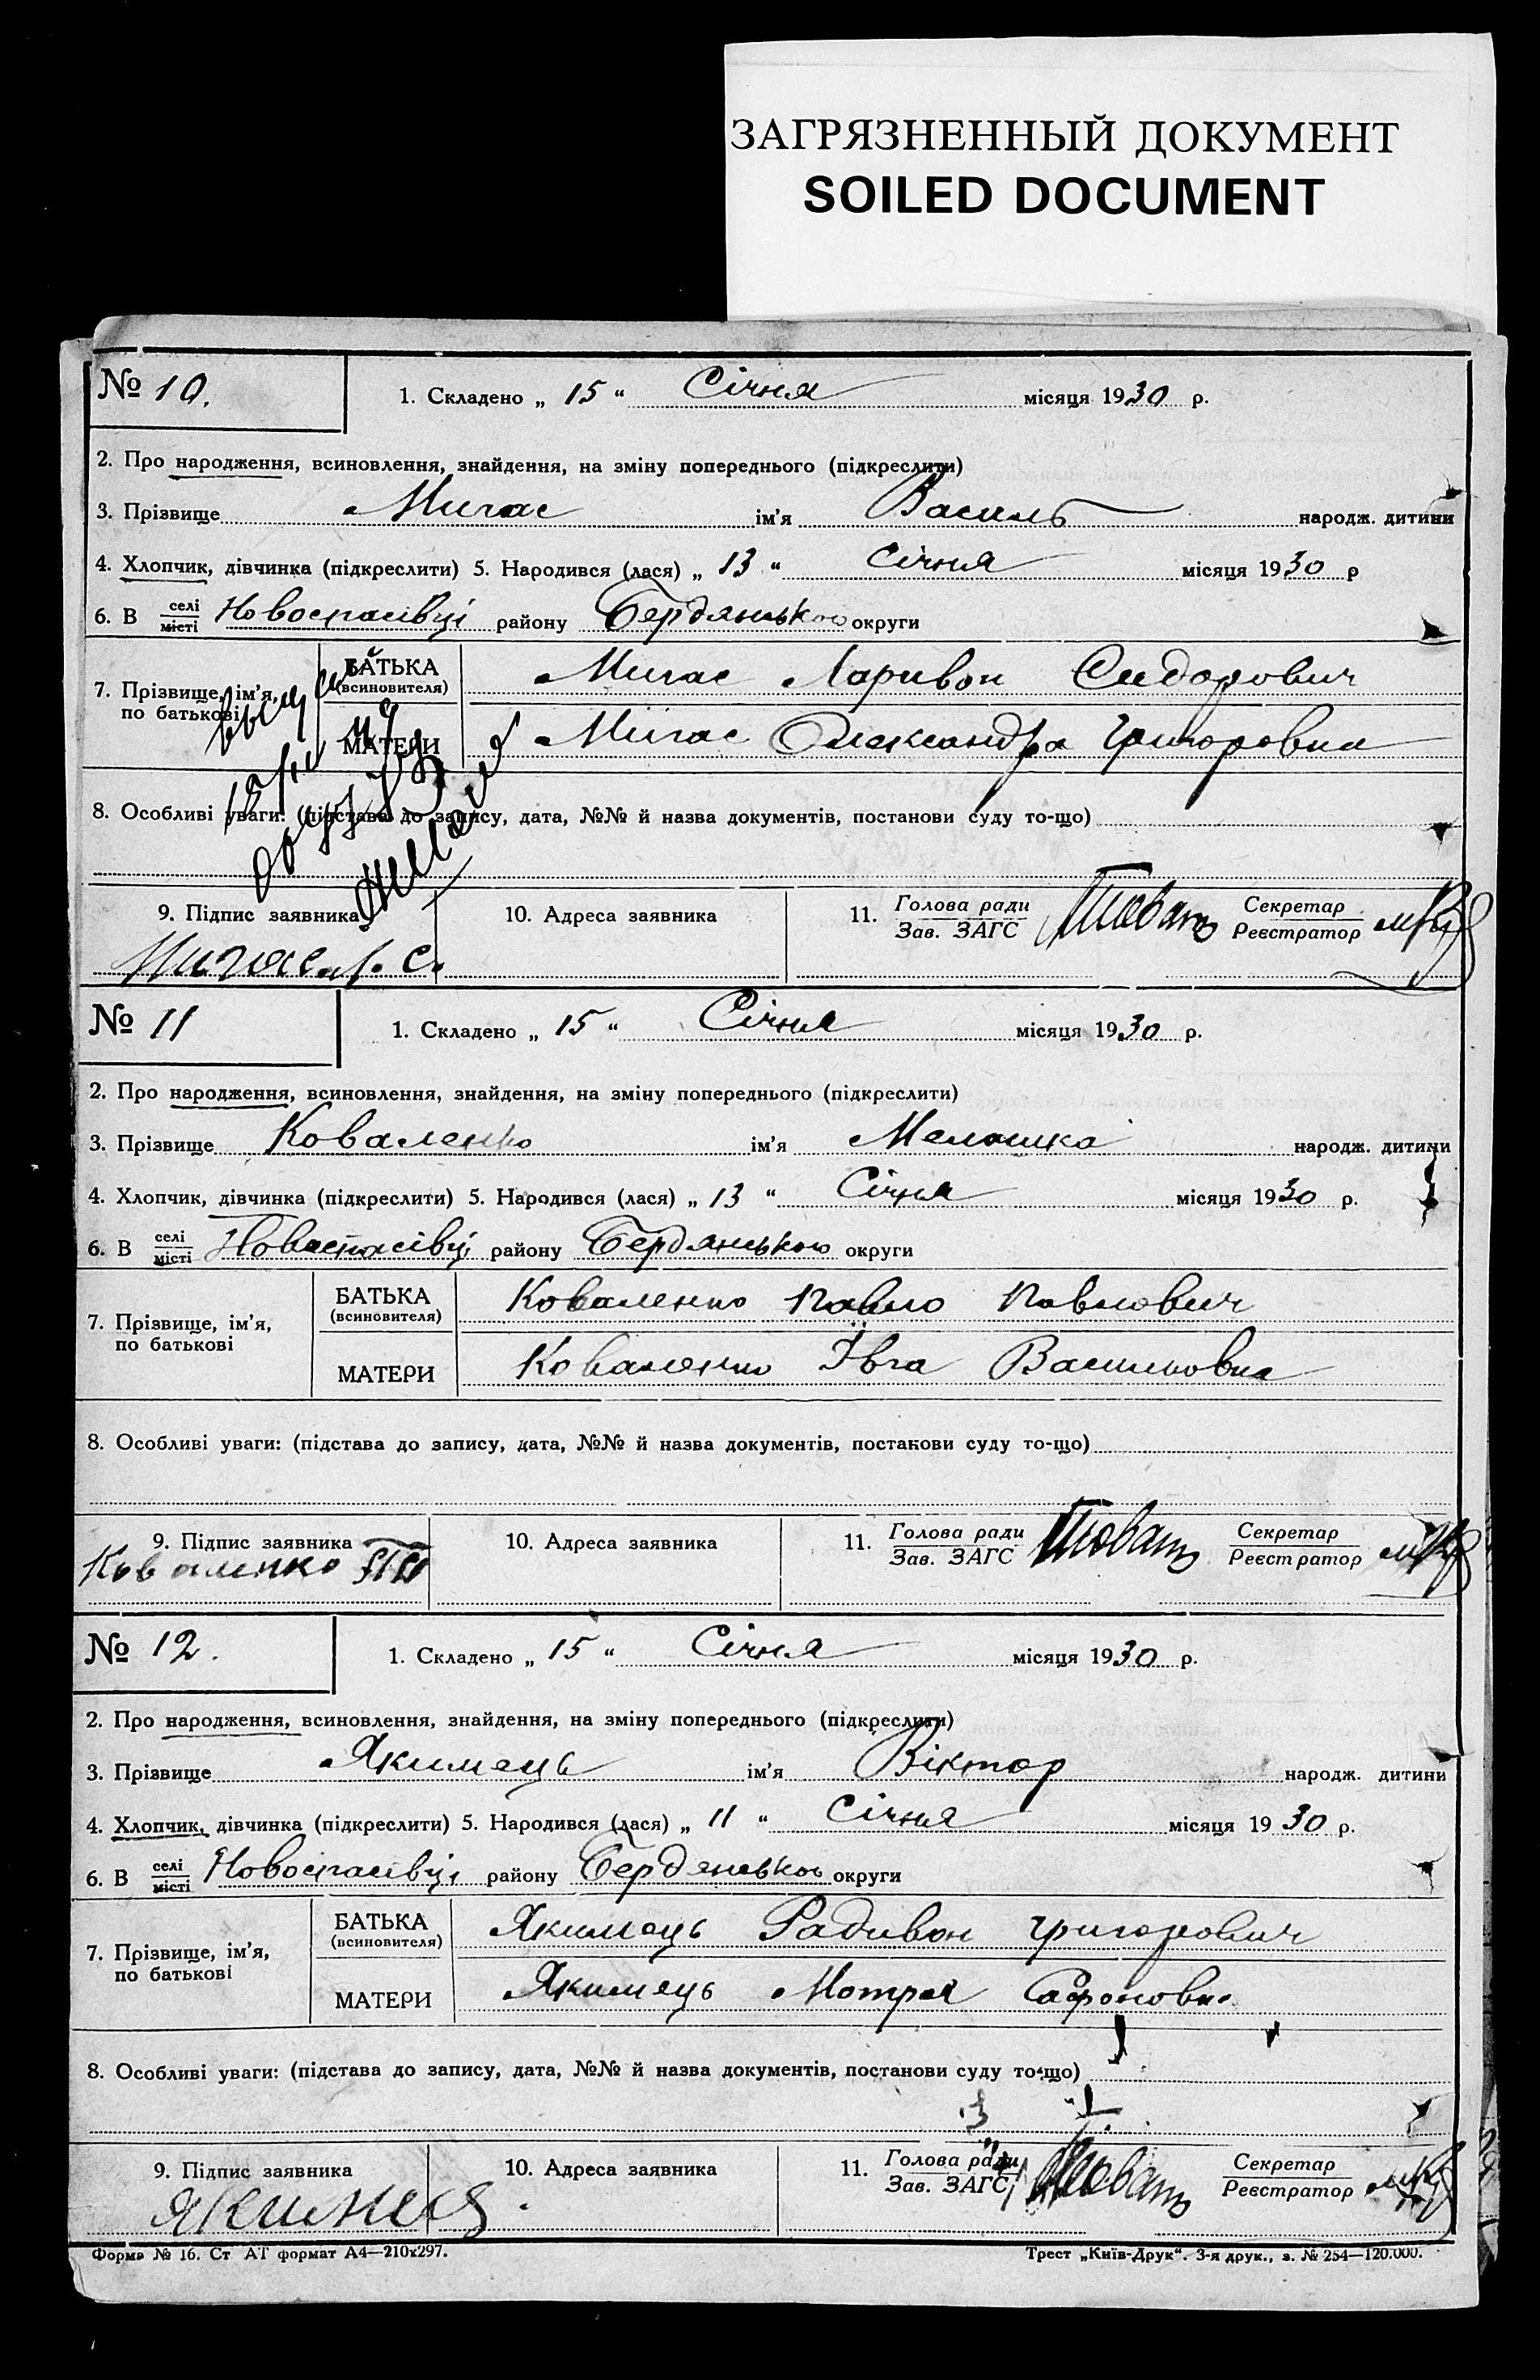 ЗАГРЯЗНЕННЫЙ ДОКУМЕНТ
SOILED DOCUMENT
№ 10. 1. Складено „ 15 “ Січня місяця 1930 р.
2. Про народження, всиновлення, знайдення, на зміну попереднього (підкреслити)
3. Прізвище Мигас ім'я Василь народж. дитини
4. Хлопчик, дівчинка (підкреслити) 5. Народився (лася) „ 13 “ Січня місяця 1930 р
6. В селі місті Новоспасівці району Бердянського округи
7. Прізвище, ім'я, по батькові
БАТЬКА (всиновителя) Мигас Ларивон Сидорович
МАТЕРИ Мигас Олександра Григоровна
8. Особливі уваги: (підстава до запису, дата, №№ й назва документів, постанови суду то-що)
9. Підпис заявника 10. Адреса заявника 11. Голова ради Зав. ЗАГС Секретар Реєстратор
Мигас Л. С.
№ 11 1. Складено „ 15 “ Січня місяця 1930 р.
2. Про народження, всиновлення, знайдення, на зміну попереднього (підкреслити)
3. Прізвище Коваленко ім'я Мелашка народж. дитини
4. Хлопчик, дівчинка (підкреслити) 5. Народився (лася) „ 13 “ Січня місяця 1930 р.
6. В селі місті Новоспасівці району Бердянського округи
7. Прізвище, ім'я, по батькові
БАТЬКА (всиновителя) Коваленко Павло Павлович
МАТЕРИ Коваленко Ївга Василовна
8. Особливі уваги: (підстава до запису, дата, №№ й назва документів, постанови суду то-що)
9. Підпис заявника 10. Адреса заявника 11. Голова ради Зав. ЗАГС Секретар Реєстратор
Коваленко ПП
№ 12. 1. Складено „ 15 “ Січня місяця 1930 р.
2. Про народження, всиновлення, знайдення, на зміну попереднього (підкреслити)
3. Прізвище Якимець ім'я Віктор народж. дитини
4. Хлопчик, дівчинка (підкреслити) 5. Народився (лася) „ 11 “ Січня місяця 1930 р.
6. В селі місті Новоспасівці району Бердянського округи
7. Прізвище, ім'я, по батькові
БАТЬКА (всиновителя) Якимець Радивон Григорович
МАТЕРИ Якимець Мотря Сафоновна
8. Особливі уваги: (підстава до запису, дата, №№ й назва документів, постанови суду то-що)
9. Підпис заявника 10. Адреса заявника 11. Голова ради Зав. ЗАГС Секретар Реєстратор
Якимец
Форма № 16. Ст АТ формат А4—210х297. Трест „Київ-Друк“. 3-я друк., з. № 254—120.000.